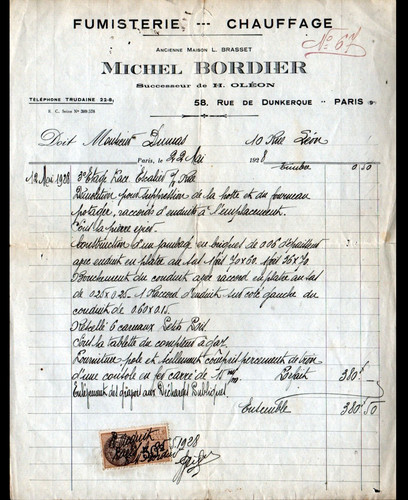 FUMISTERIE --- CHAUFFAGE
No 67
ANCIENNE MAISON L. BRASSET
MICHEL BORDIER
Successeur de H. OLÉON
TÉLÉPHONE TRUDAINE 22-
58, RUE DE DUNKERQUE -- PARIS (9e)
R. C. Seine No
Doit Monsieur Dumas 10 Rue Léon
Paris, le 22 Mai 1928
timbre 0 50
12 Mai 1928 3e Etage Face Escalier s/ Rue
Démolition pour suppression de la hotte et du fourneau
potager, raccords d'enduits à l'emplacement.
Sous la pierre évier
Construction d'un jambage en briques de 0.06 d'épaisseur
avec enduit en plâtre
Bouchement du conduit avec raccord en plâtre au
de 0.25 x 0.25 - 1 Raccord d'enduit sur côté gauche du
conduit de 0.60 x 0.15
6 carreaux Petits
Sous la tablette du compteur à gaz.
Fourniture pose et scellement percement de trou
d'une console en fer carré de 15 m/m 380f
Enlèvement des gravois aux Décharges Publiques
Ensemble 380f 50
1928